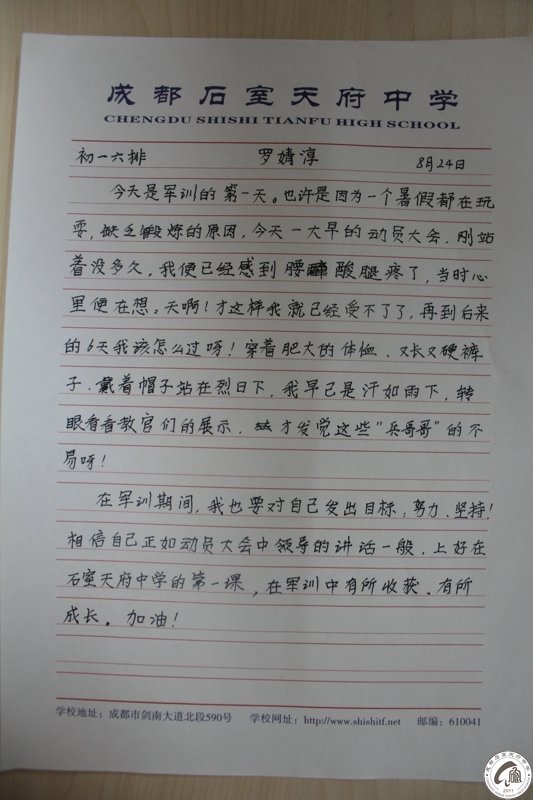 成都石室天府中学
CHENGDU SHISHI TIANFU HIGH SCHOOL
初一六排 罗婧淳 8月24日
今天是军训的第一天。也许是因为一个暑假都在玩
耍,缺乏锻炼的原因,今天一大早的动员大会,刚站
着没多久,我便已经感到腰酸腿疼了,当时心
里便在想:天啊!才这样我就已经受不了了,再到后来
的6天我该怎么过呀!穿着肥大的体恤、又长又硬裤
子、戴着帽子站在烈日下,我早已是汗如雨下,转
眼看看教官们的展示,才发觉这些“兵哥哥”的不
易呀!
在军训期间,我也要对自己发出目标:努力、坚持!
相信自己正如动员大会中领导的讲话一般,上好在
石室天府中学的第一课,在军训中有所收获、有所
成长。加油!
学校地址:成都市剑南大道北段590号 学校网址:http://www.shishitf.net 邮编:610041
2011